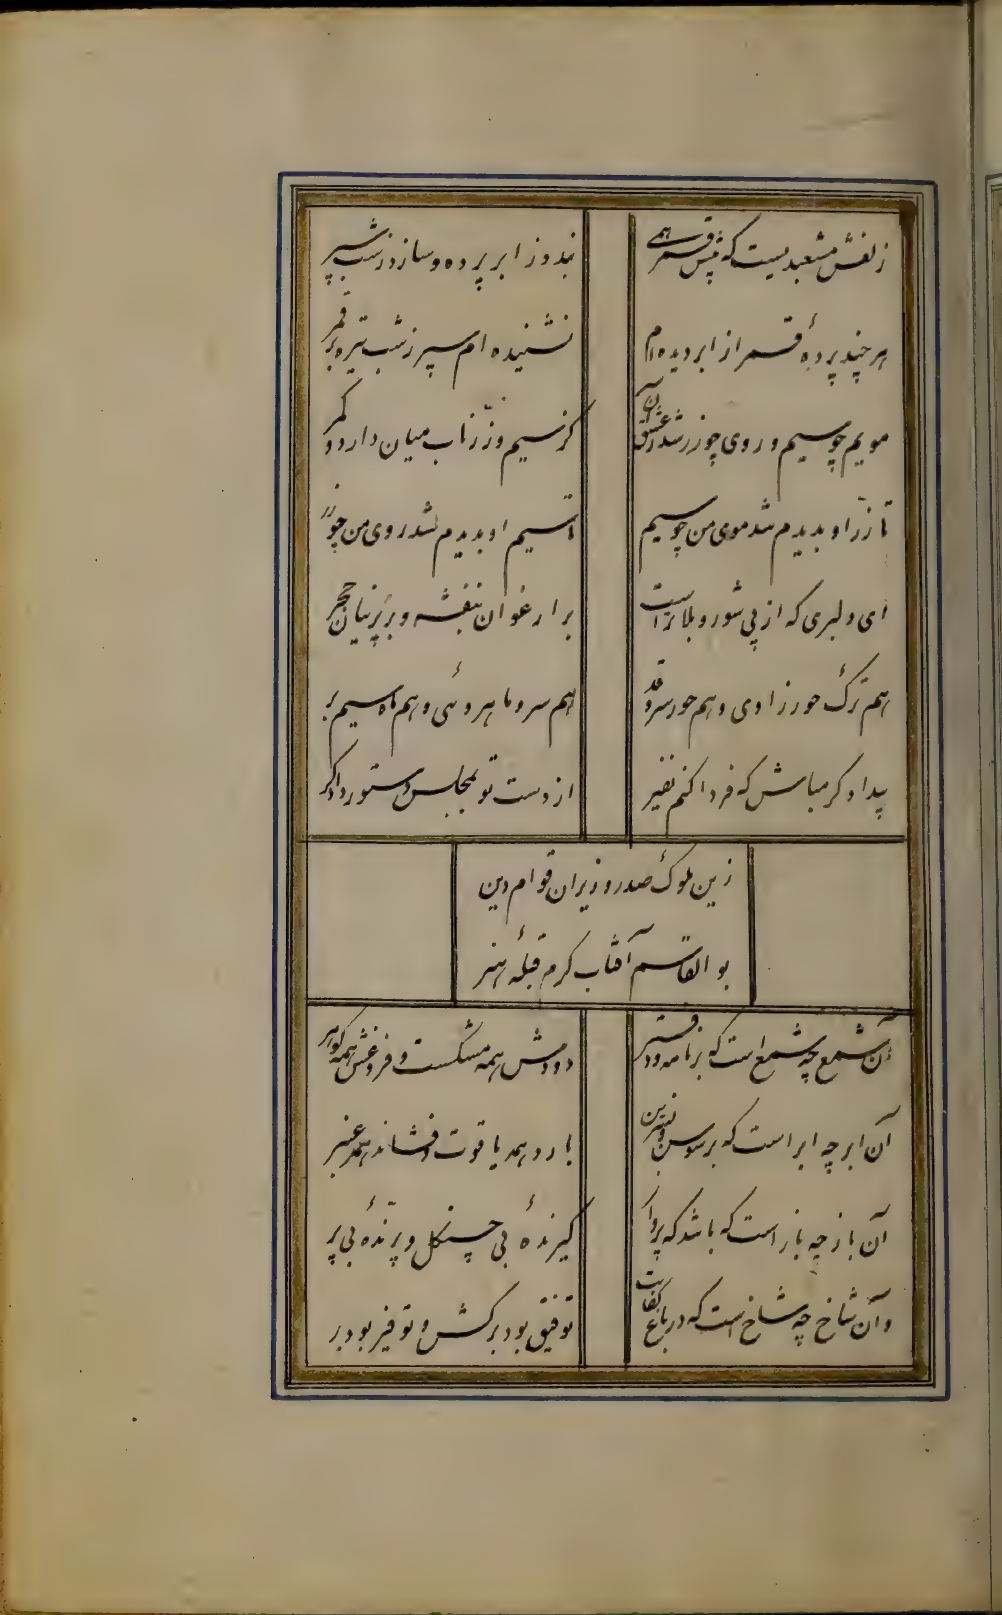 زلفش مشعبدیست که پیش قمر همی
بندد ز ابر پرده و سازد ز شب سپر
هر چند پردهٔ قمر از ابر دیده‌ام
نشنیده‌ام سپر ز شب تیره بر قمر
مویم چو سیم و روی چو زر شد ز عشق آن
کز سیم و زرّ ناب میان دارد و کمر
تا زرّ او بدیدم شد موی من چو سیم
تا سیم او بدیدم شد روی من چو زر
ای دلبری که از پی شور و بلا تراست
بر ارغوان بنفشه و بر پرنیان حجر
هم ترک حورزادی و هم حور سروقد
هم سرو ماهروئی و هم ماه سیمبر
بیدادگر مباش که فردا کنم نفیر
از دست تو بمجلس دستور دادگر
زین ملوک صدر وزیران قوام دین
بوالقاسم آفتاب کرم قبلهٔ هنر
آن شمع چه شمع است که بر نامه و دفتر
دودش همه مشکست و فروغش همه گوهر
آن ابر چه ابر است که بر سوسن و نسرین
بارد همه یاقوت و فشاند همه عنبر
آن باز چه باز است که باشد که پرواز
گیرندهٔ بی چنگل و پرّندهٔ بی پر
وآن شاخ چه شاخ است که در باغ کفایت
توفیق بود برگش و توفیر بود بر